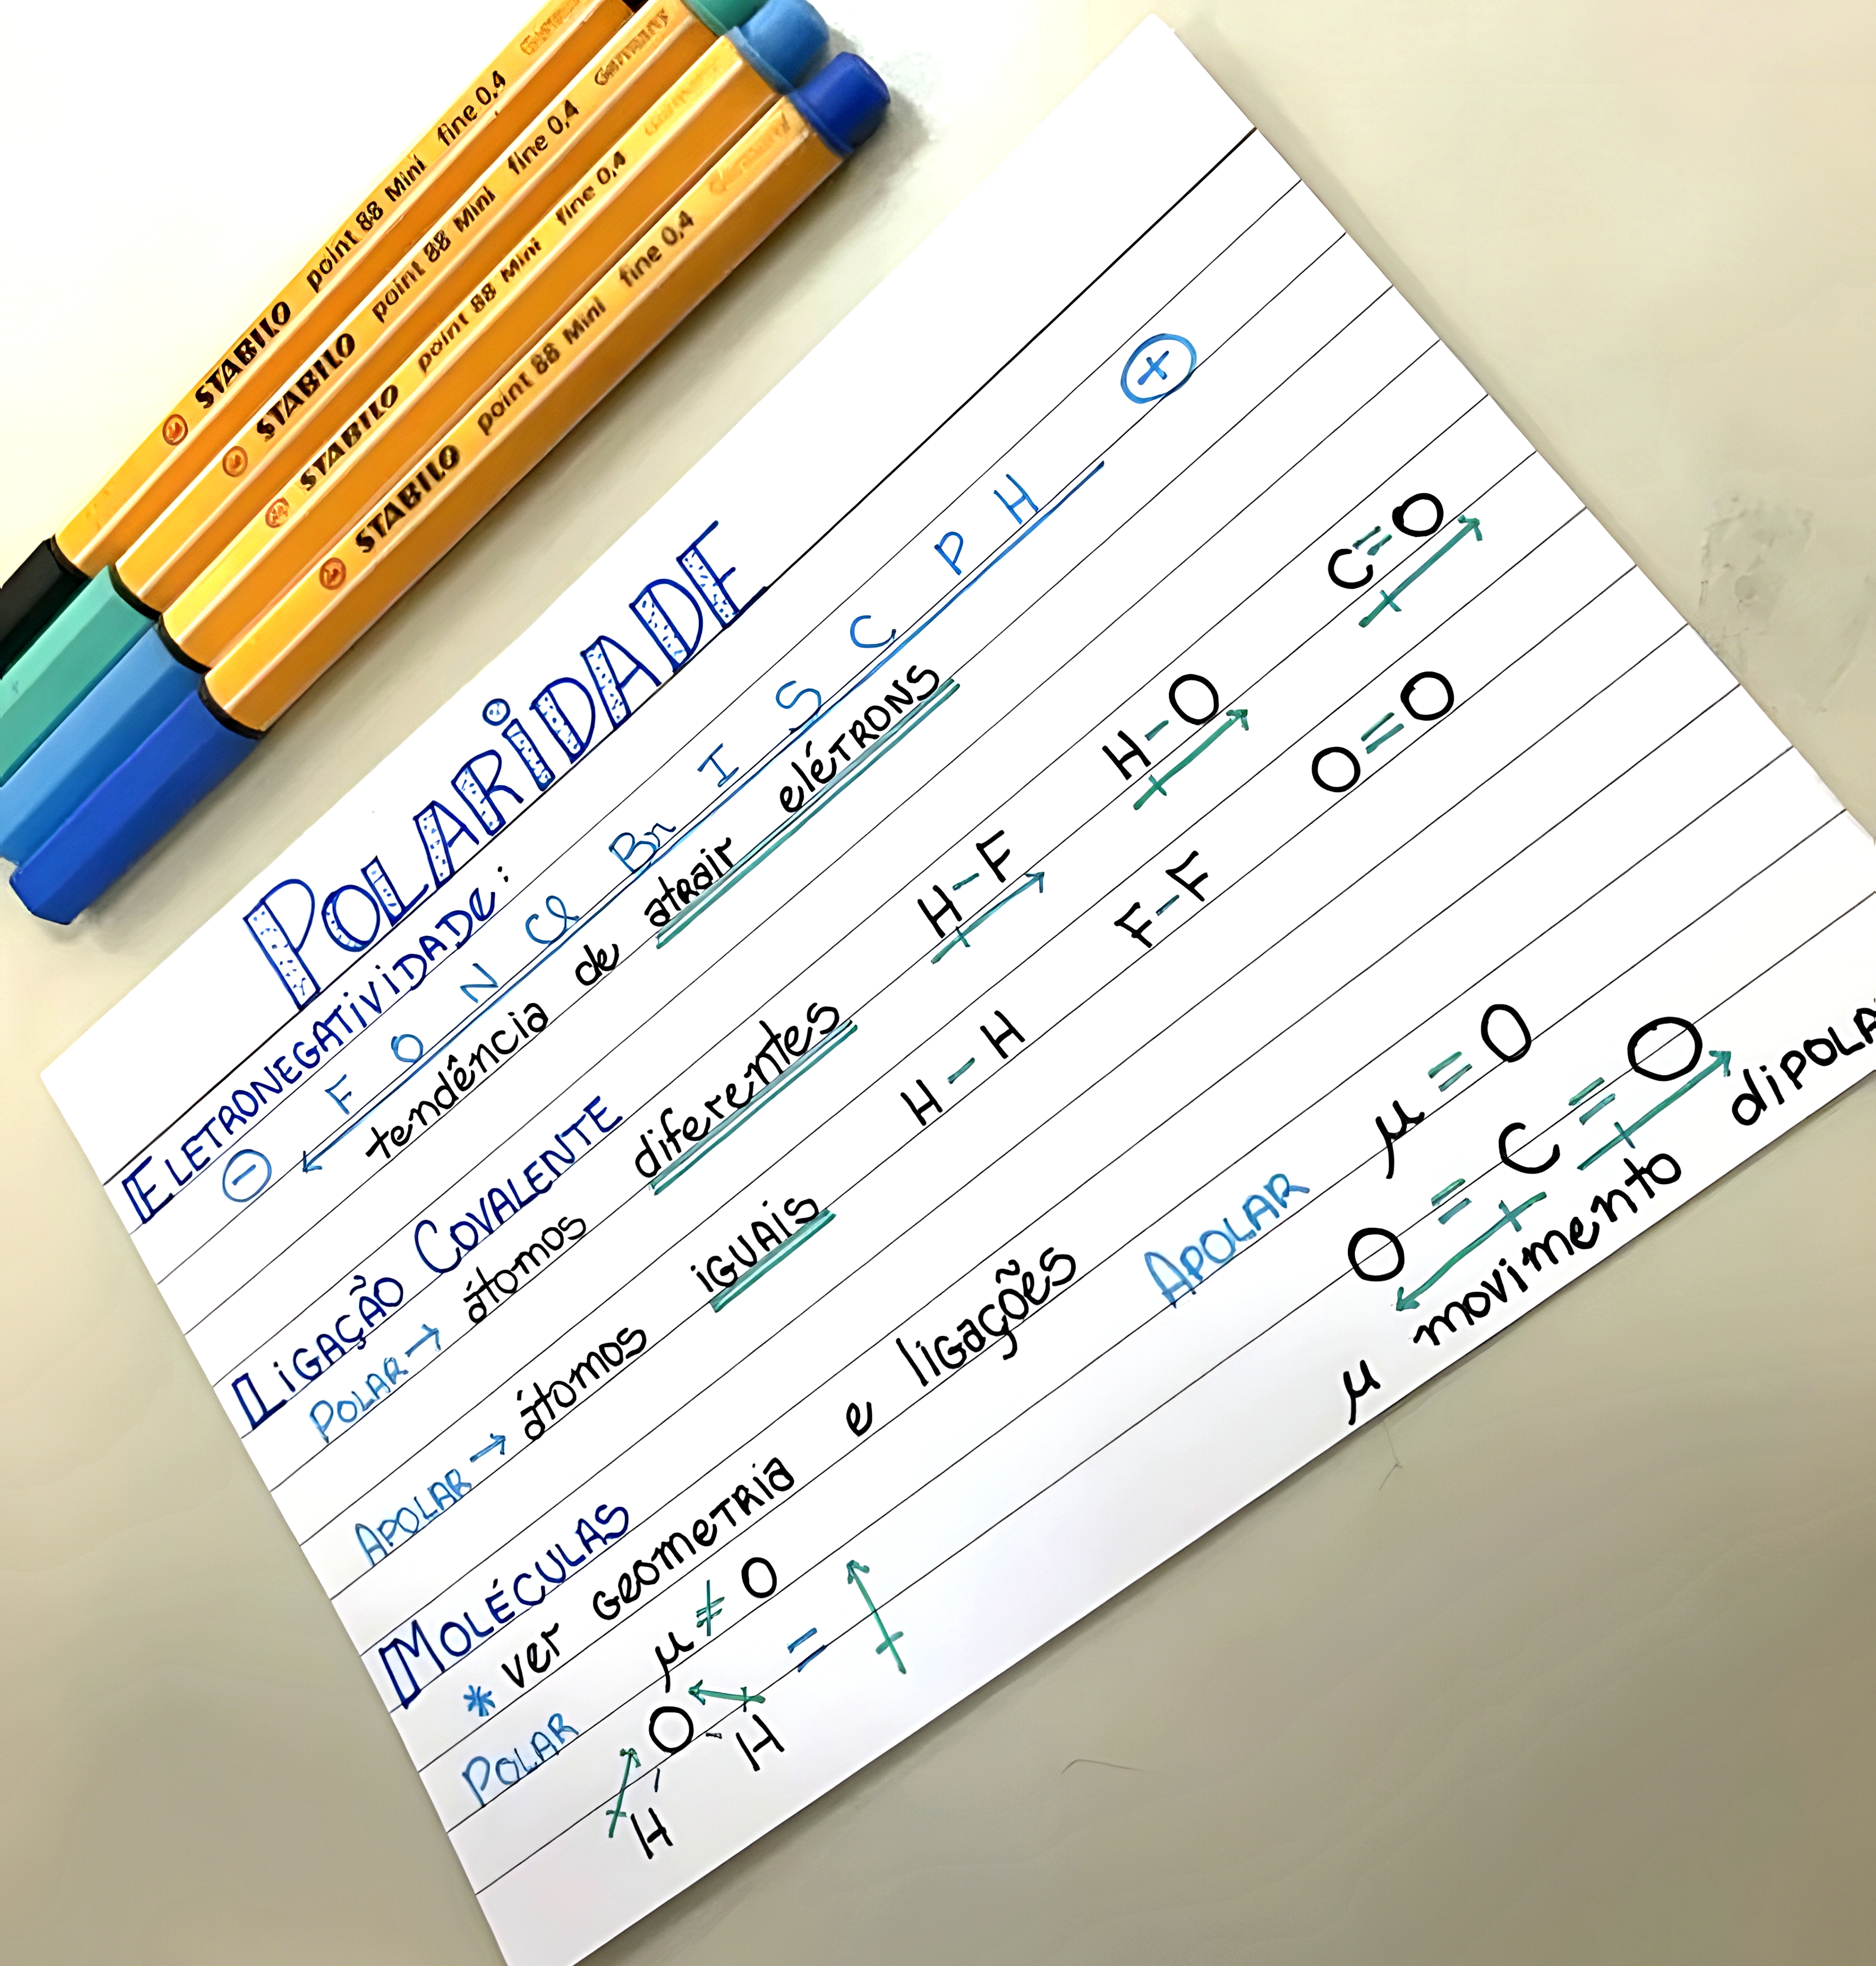 STABILO point 88 Mini fine 0,4
STABILO point 88 Mini fine 0,4 Germany
STABILO point 88 Mini fine 0,4
STABILO point 88 Mini fine 0,4
POLARiDADE
ELETRONEGATiViDADE:
− F O N Cl Br I S C P H +
tendência de atrair elétrons
LiGAÇÃO COVALENTE
POLAR → átomos diferentes H-F H-O C=O
APOLAR → átomos iGUAIS H-H F-F O=O
MOLÉCULAS
* ver GEOMETRIA e ligações
POLAR μ ≠ O APOLAR μ = O
O - H = O = C = O
H
μ movimento dipola